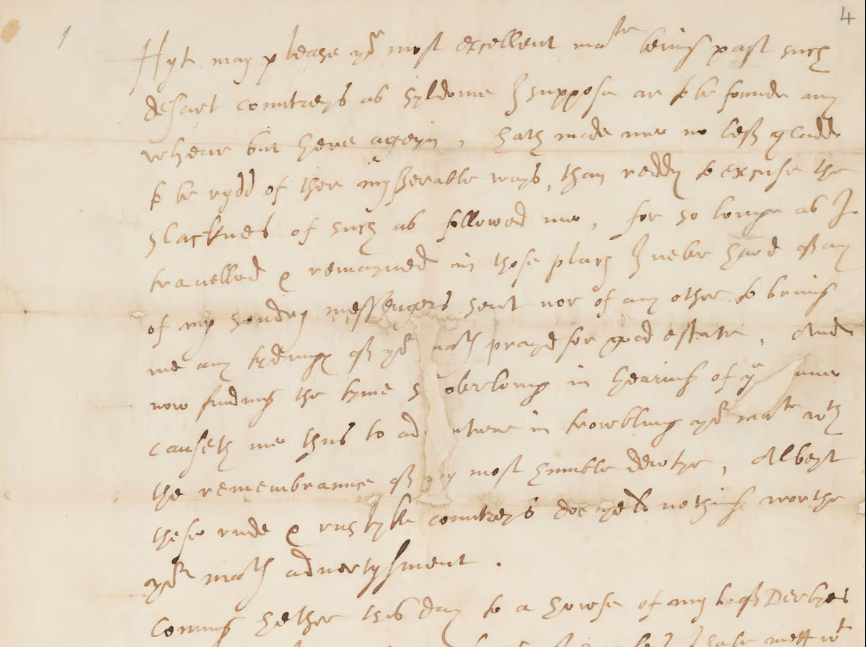 4
Hyt may please yor most excellent matie being past such
desart countreys as syldome I suppose ar to be founde any
whear but here ageyn, hath made me no less gladde
to be rydd of ther myserable ways, than reddy to excuse the
slacknes of such as followed me, for so longe as I
travelled & remayned in those places I never hard of any
of my sondry messengers sent nor of any other to bring
me any tydings of yor prayd for good estate, And
now finding the tyme overlong in hearing of
causeth me thus to in trowbling yor matie wth
the remembrance of my most humble dewtye, Albeyt
these rude & rustyke countreys doe yeld nothing worthe
yor advertysment.
Coming hether this day to a howse of my L. of Derbyes
I have mett wt